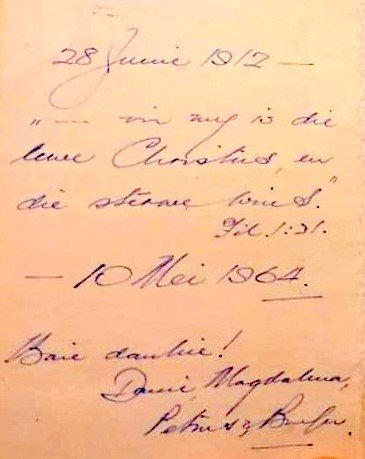 28 Junie 1912 —
"— vir my is die
lewe Christus, en
die sterwe wins."
Fil. 1:21.
— 10 Mei 1964.
Baie dankie!
Danie, Magdalena,
Petrus &